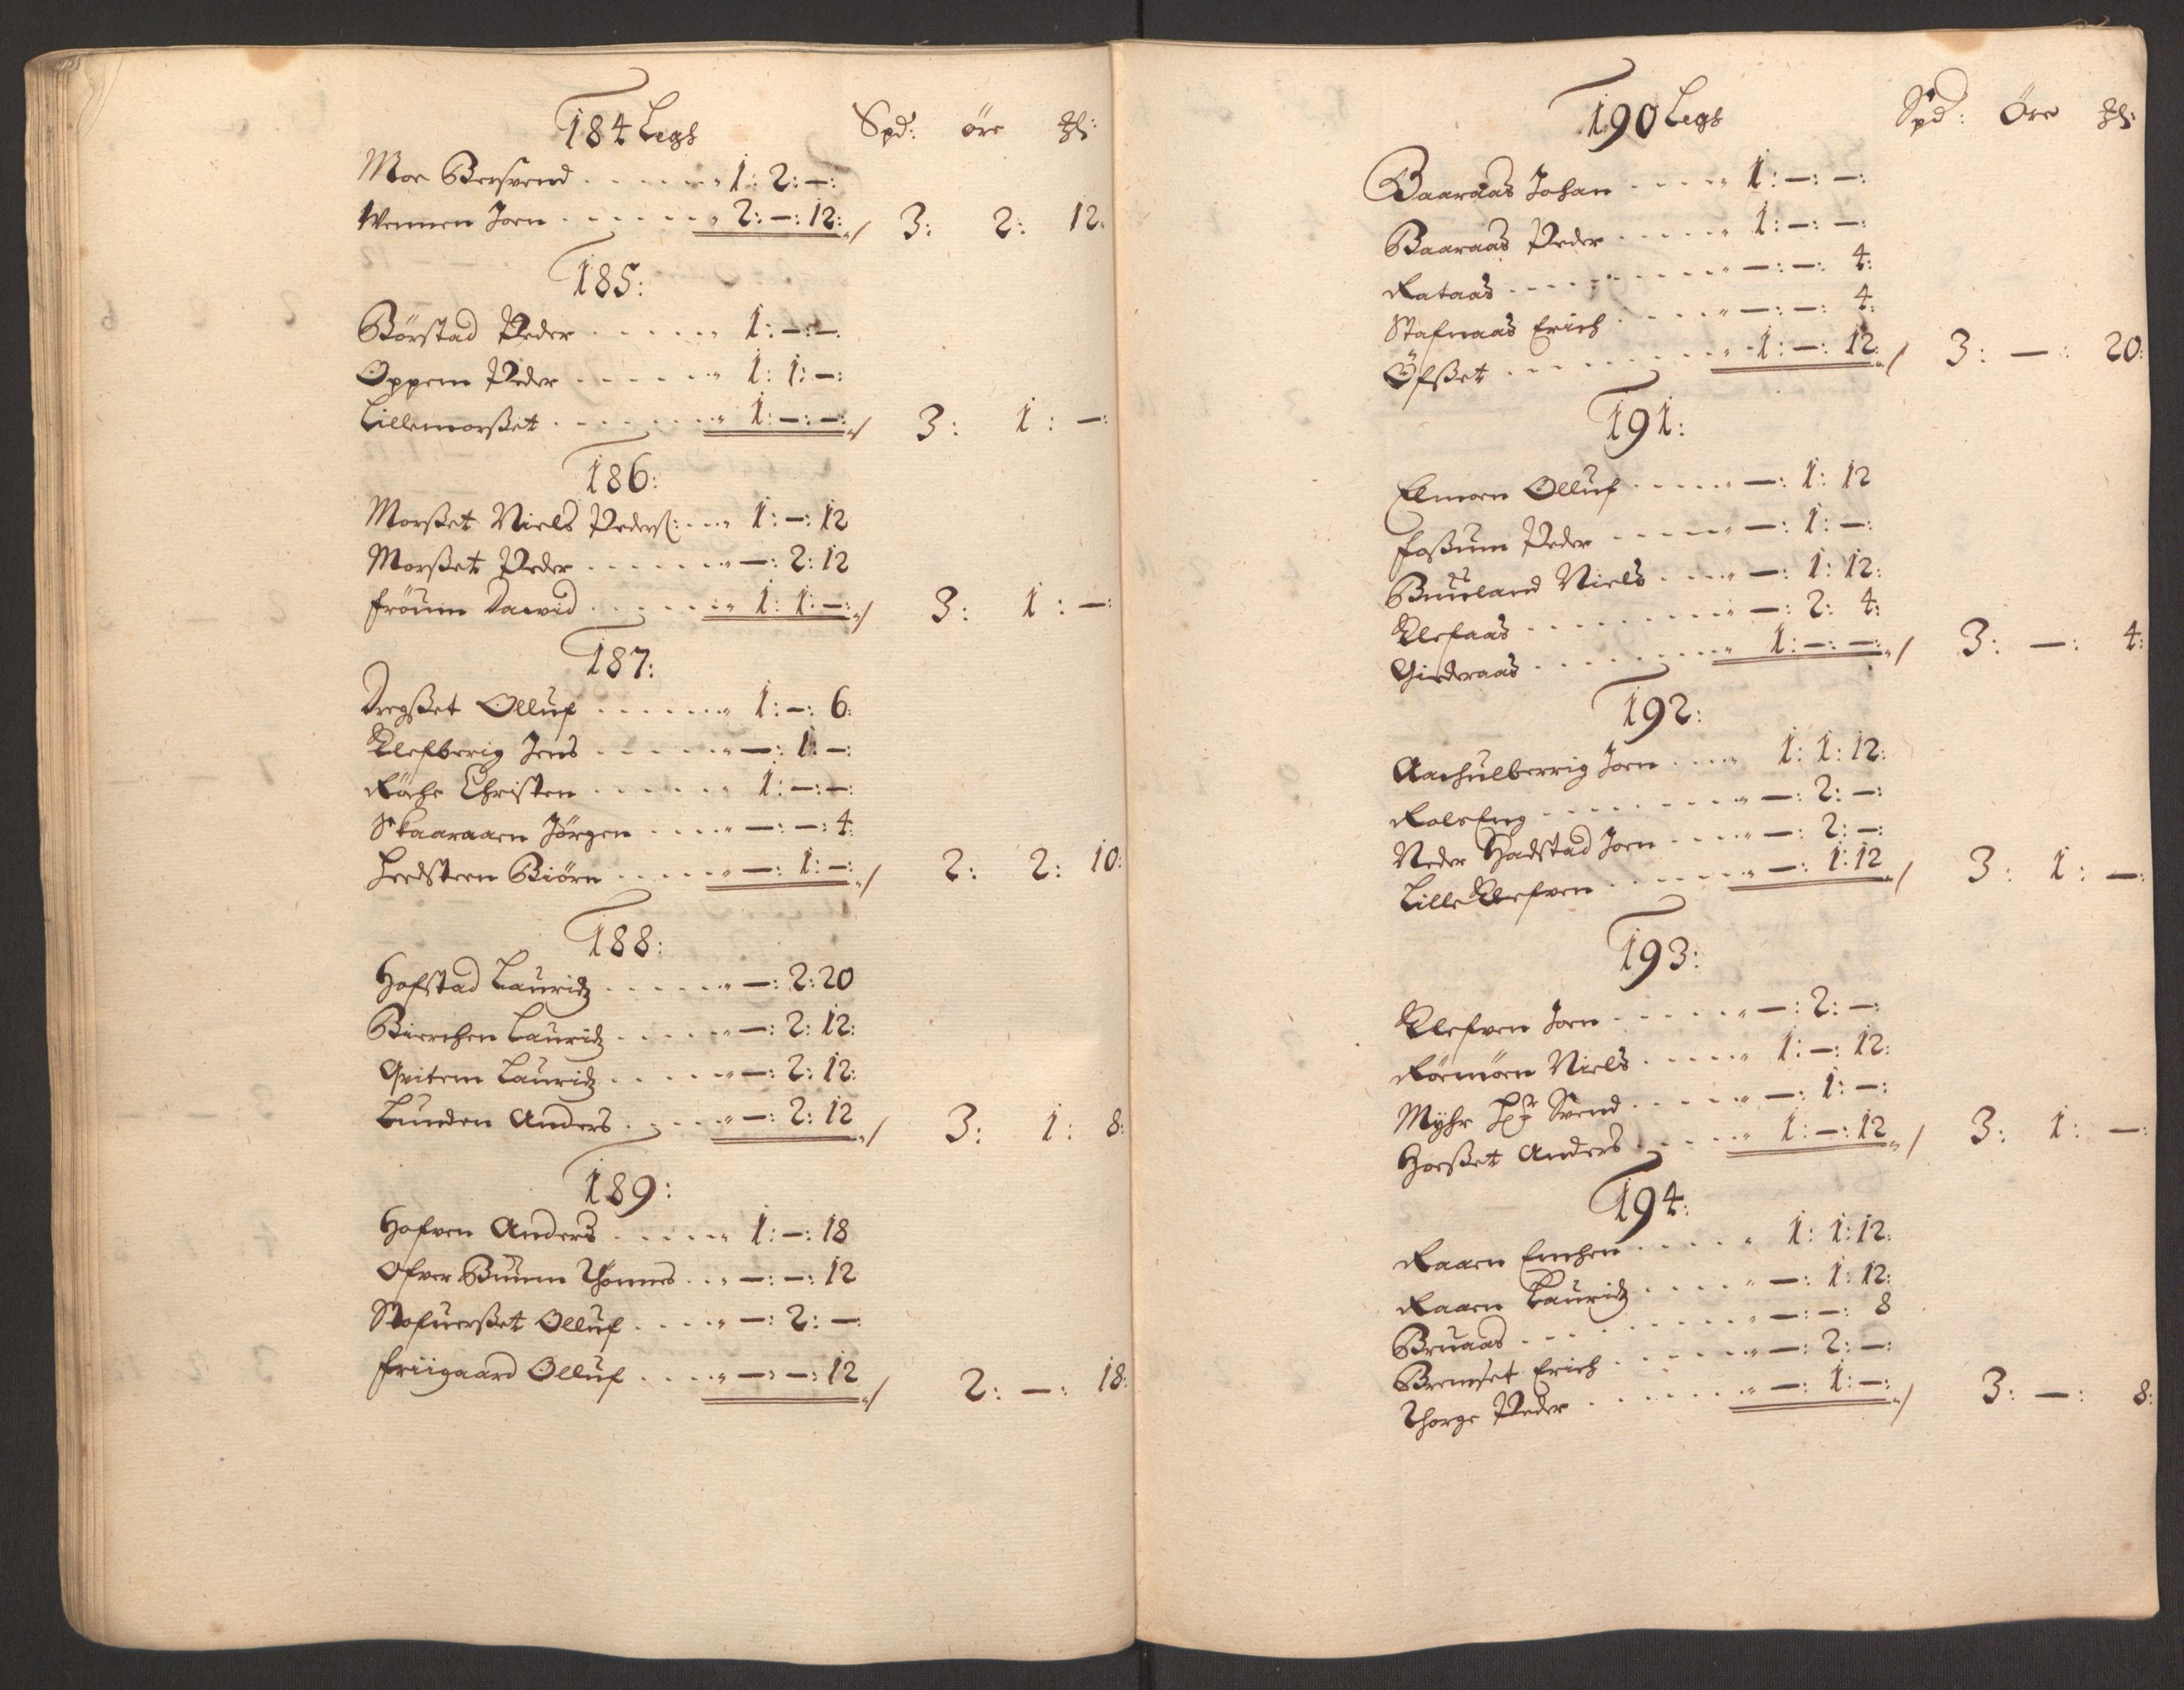 184 Legh Spd: öre
Moe Bersvend . . . . . . „ 1: 2: —:
Wennen Joen . . . . . . „ 2: —: 12: „/ 3: 2: 12:
185:
Börstad Peder . . . . . . „ 1: —: —:
Oppem Peder . . . . . . „ 1: 1: —:
Lillemorßet . . . . . . . „ 1: —: —: „/ 3: 1: —:
186:
Morßet Niels Peders: . . „ 1: —: 12
Morßet Peder . . . . . . . „ —: 2: 12
fröüm Dawid . . . . . . „ 1: 1: —: „/ 3: 1: —:
187:
Dregßet Olluf . . . . . . „ 1: —: 6:
Klefberig Jens . . . . . . „ —: 1: —:
Röche Christen . . . . . . „ 1: —: —:
Skaaraaen Jörgen . . . . „ —: —: 4:
Leedsteen Biörn . . . . . „ —: 1: —: „/ 2: 2: 10:
188:
Hofstad Lauridz . . . . . . „ —: 2: 20
Bierchen Lauridz . . . . . „ —: 2: 12:
Qvitem Lauridz . . . . . „ —: 2: 12:
Lunden Anders . . . . . „ —: 2: 12 „/ 3: 1: 8:
189:
Hofven Anders . . . . . „ 1: —: 18
Ofver Buum Thomes . . „ —: —: 12
Stofuerßet Olluf . . . . „ —: 2: —:
friigaard Olluf . . . . „ —: —: 12 „/ 2: —: 18:
190 Legh Spd: Öre
Baaraas Johan . . . . „ 1: —: —:
Baaraas Peder . . . . . „ 1: —: —:
Rataas . . . . . . . . . „ —: —: 4:
Stafnaas Erich . . . . „ —: —: 4:
Öfßet . . . . . . . . „ 1: —: 12: „/ 3: —: 20:
191:
Elmoen Olluf . . . . . „ —: 1: 12
foßum Peder . . . . . „ —: 1: —:
Buuland Niels . . . . „ —: 1: 12:
Klefaas . . . . . . . . . „ —: 2: 4:
Giederaas . . . . . . . . „ 1: —: —: „/ 3: —: 4:
192:
Aachulberrig Joen . . . „ 1: 1: 12:
RolsEng . . . . . . . . „ —: 2: —:
Neder Hadstad Joen . . . . „ —: 2: —:
Lille Klefven . . . . . . . „ —: 1: 12 „/ 3: 1: —:
193:
Klefven Joen . . . . . . „ —: 2: —:
Römoen Niels . . . . . „ 1: —: 12:
Myhr Svend . . . . . „ —: 1: —:
Hoeßet Anders . . . . . „ 1: —: 12 „/ 3: 1: —:
194:
Raaen Emchen . . . . . „ 1: 1: 12:
Raaen Lauridz . . . . . „ —: 1: 12:
Bruaas . . . . . . . . . „ —: —: 8
Bremset Erich . . . . . . „ —: 2: —:
Thorge Peder . . . . . . . „ —: 1: —: „/ 3: —: 8: